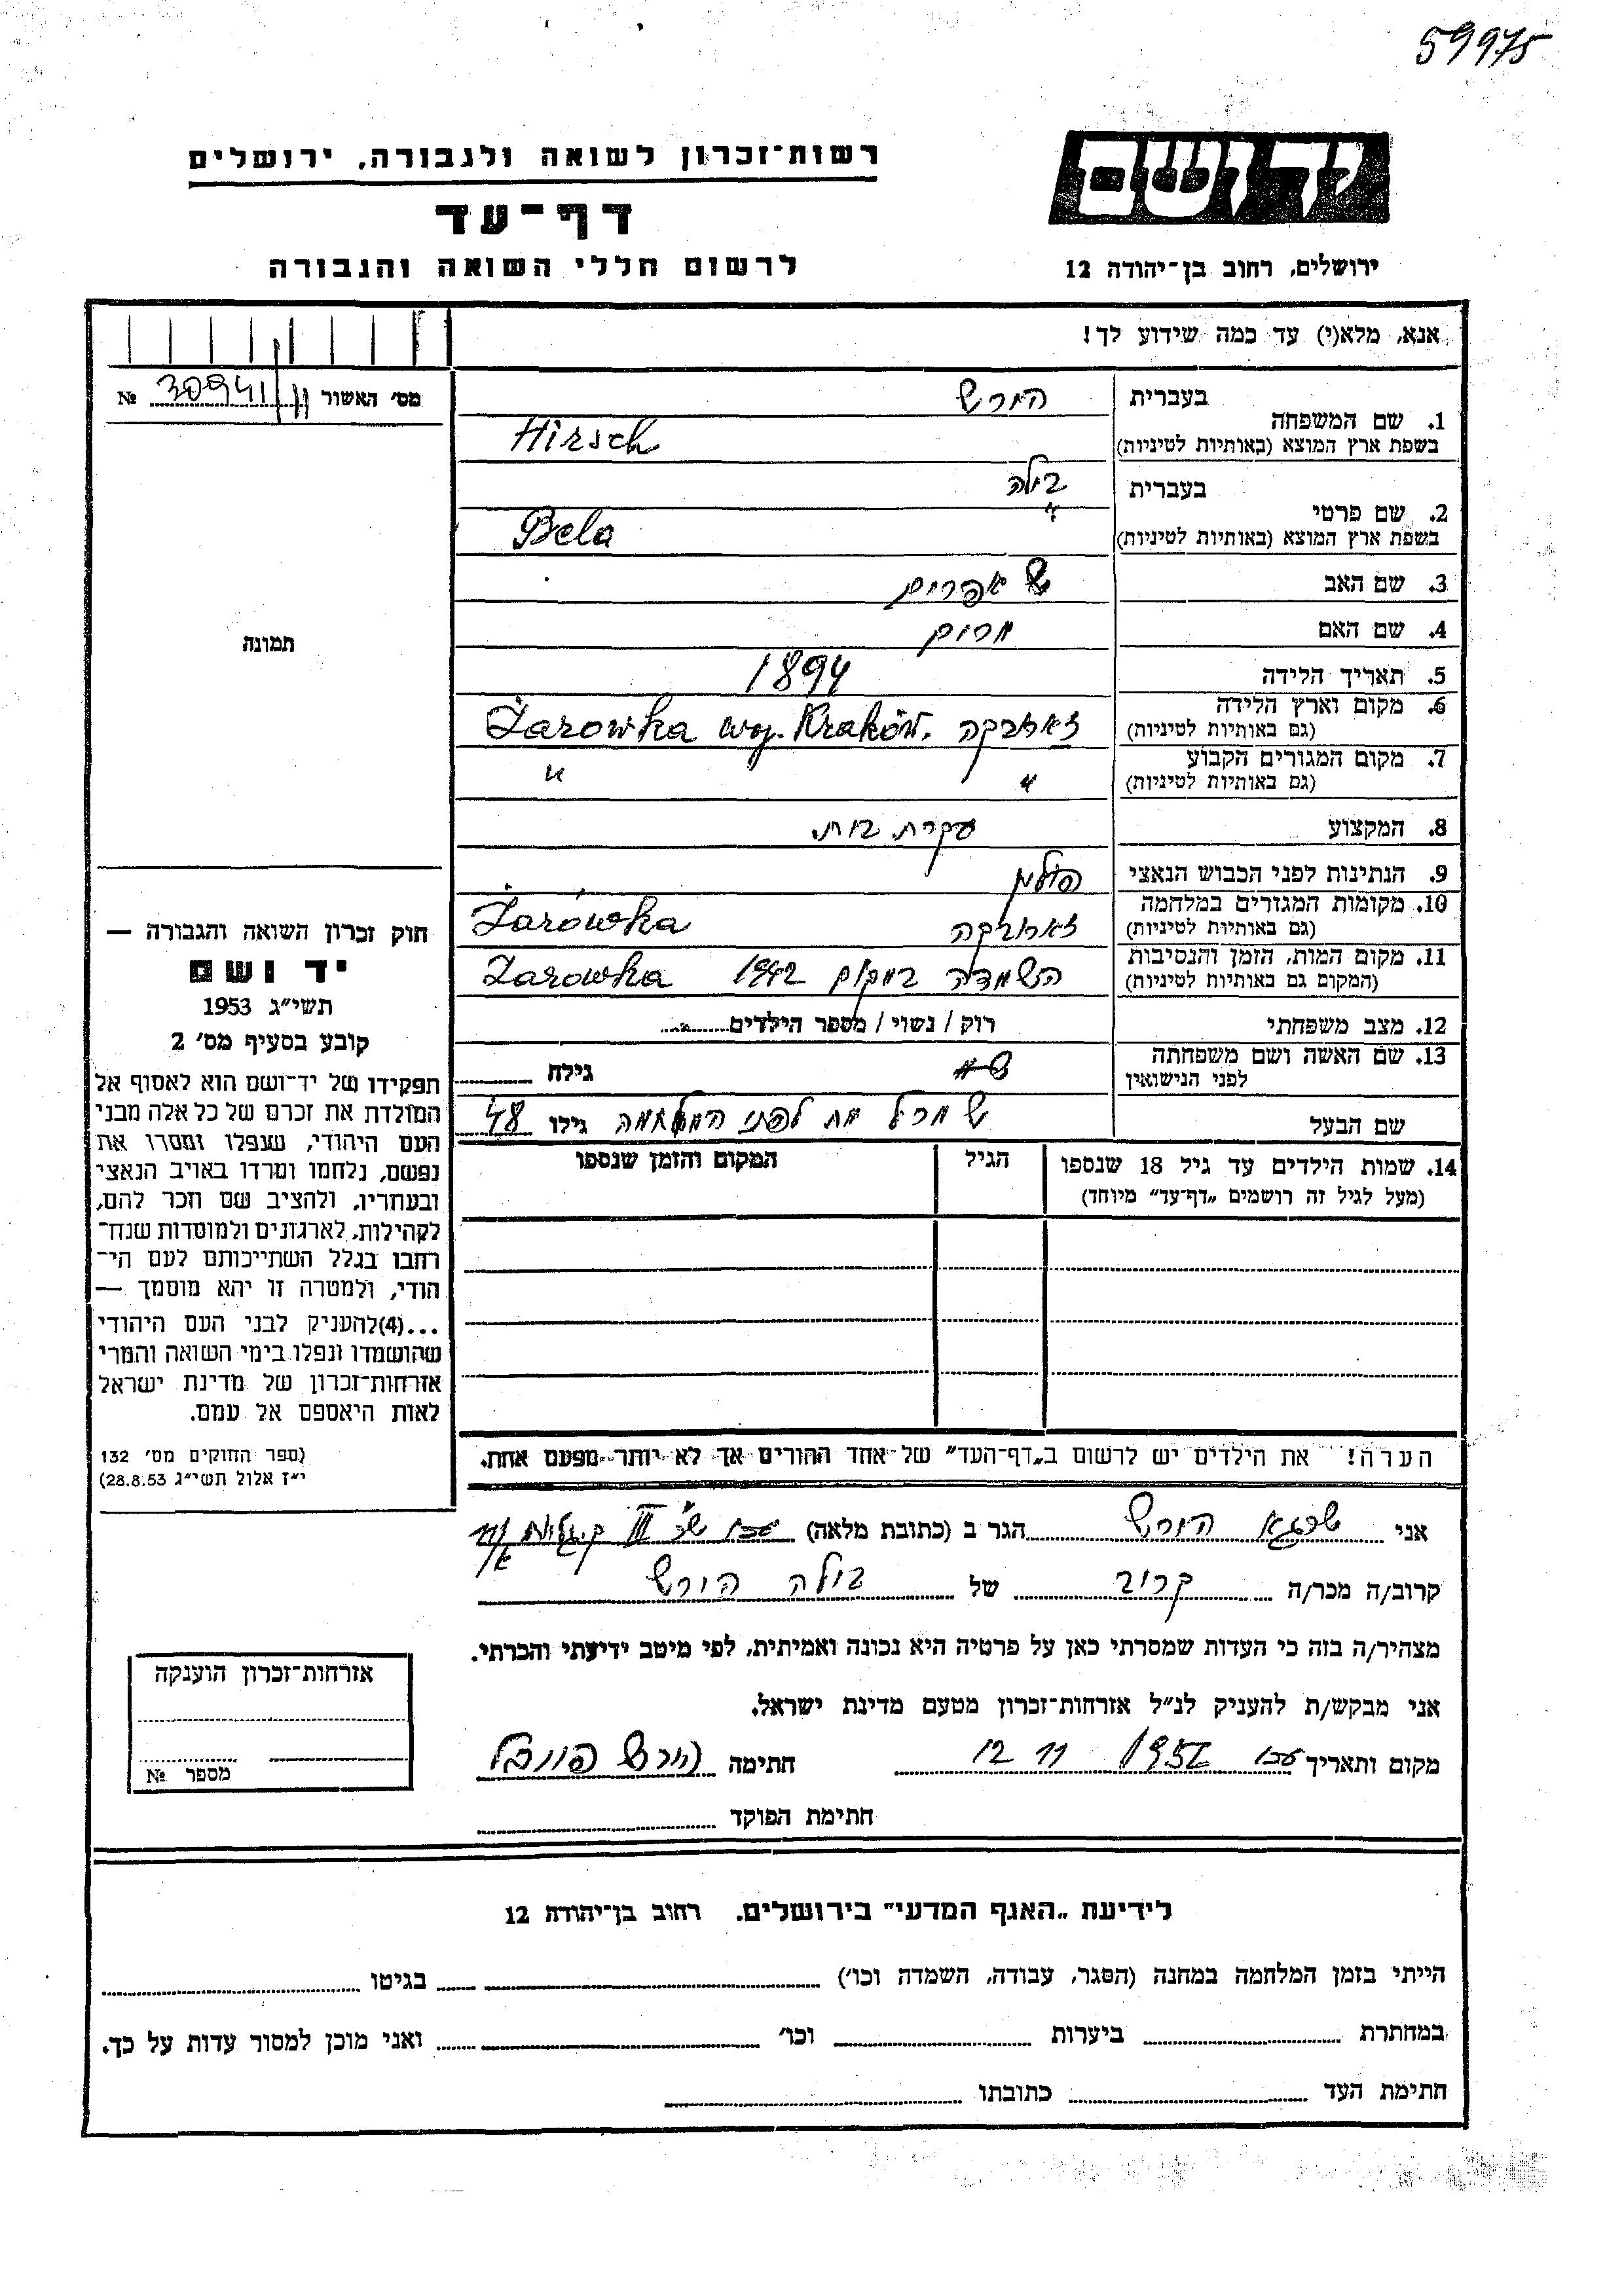 59975
ידושם
רשות־זכרון לשואה ולגבורה, ירושלים
דף־עד
לרשום חללי השואה והגבורה
ירושלים, רחוב בן־יהודה 12
אנא, מלא(י) עד כמה שידוע לך!
מס׳ האשור 30941 №
1. שם המשפחה בעברית הירש
בשפת ארץ המוצא (באותיות לטיניות) Hirsch
2. שם פרטי בעברית בילה
בשפת ארץ המוצא (באותיות לטיניות) Bela
3. שם האב אפרים
4. שם האם מרים
5. תאריך הלידה 1894
6. מקום וארץ הלידה (גם באותיות לטיניות) Żarowka woj. Kraków.
7. מקום המגורים הקבוע (גם באותיות לטיניות) " "
8. המקצוע עקרת בית.
9. הנתינות לפני הכבוש הנאצי פולין
10. מקומות המגורים במלחמה (גם באותיות לטיניות) Żarówka
11. מקום המות, הזמן והנסיבות (המקום גם באותיות לטיניות) השמדה במקום 1942 Zarowka
12. מצב משפחתי רוק / נשוי / מספר הילדים
13. שם האשה ושם משפחתה לפני הנישואין גילה
שם הבעל שמריל מת לפני המלחמה גילו 48
14. שמות הילדים עד גיל 18 שנספו הגיל המקום והזמן שנספו
(מעל לגיל זה רושמים „דף־עד” מיוחד)
הערה! את הילדים יש לרשום ב„דף־העד” של אחד ההורים אך לא יותר מפעם אחת.
תמונה
חוק זכרון השואה והגבורה —
יד ושם
תשי״ג 1953
קובע בסעיף מס׳ 2
תפקידו של יד־ושם הוא לאסוף אל
המולדת את זכרם של כל אלה מבני
העם היהודי, שנפלו ומסרו את
נפשם, נלחמו ומרדו באויב הנאצי
ובעוזריו, ולהציב שם וזכר להם,
לקהילות, לארגונים ולמוסדות שנח־
רחבו בגלל השתייכותם לעם הי־
הודי, ולמטרה זו יהא מוסמך —
...(4)להעניק לבני העם היהודי
שהושמדו ונפלו בימי השואה והמרי
אזרחות־זכרון של מדינת ישראל
לאות היאספם אל עמם.
(ספר החוקים מס׳ 132
י״ז אלול תשי״ג 28.8.53)
אני הירש הגר ב (כתובת מלאה) עכו
קרוב/ה מכר/ה קרוב של בילה הירש
מצהיר/ה בזה כי העדות שמסרתי כאן על פרטיה היא נכונה ואמיתית, לפי מיטב ידיעתי והכרתי.
אני מבקש/ת להעניק לנ״ל אזרחות־זכרון מטעם מדינת ישראל.
מקום ותאריך עכו 12 11 195 חתימה הירש
חתימת הפוקד
אזרחות־זכרון הוענקה
מספר №
לידיעת „האגף המדעי” בירושלים. רחוב בן־יהודה 12
הייתי בזמן המלחמה במחנה (הסגר, עבודה, השמדה וכו׳) בגיטו
במחתרת ביערות וכו׳ ואני מוכן למסור עדות על כך.
חתימת העד כתובתו